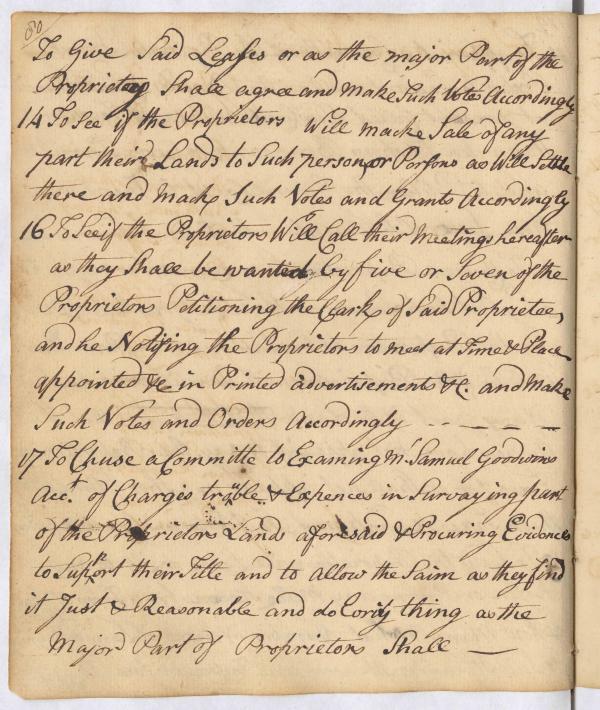 To Give Said Leases or as the major Part of the
Proprietory Shall agree and make Such Votes Accordingly
14 To see if the Proprietors Will macke Sale of any
part their Lands to Such person or Porsons as Will Settle
there and make Such Votes and Grants Accordingly
16 To See if the Proprietors Will Call their Meetings hereafter
as they Shall be wanted by five or Seven of the
Proprietors Petitioning the Clark of Said Proprietee,
and he Notifing the Proprietors to meet at Time & Place
appointed &c in Printed advertisements &c. and Make
Such Votes and Orders Accordingly - - - - -
17 To Chuse a Committe to Examing Mr. Samuel Goodwins
Acct. of Charges troble & Expences in Survaying part
of the Proprietors Lands aforesaid & Procuring Evidences
to Suport their Title and to allow the Saim as they find
it Just & Reasonable and do Every thing as the
Major Part of Proprietors Shall —